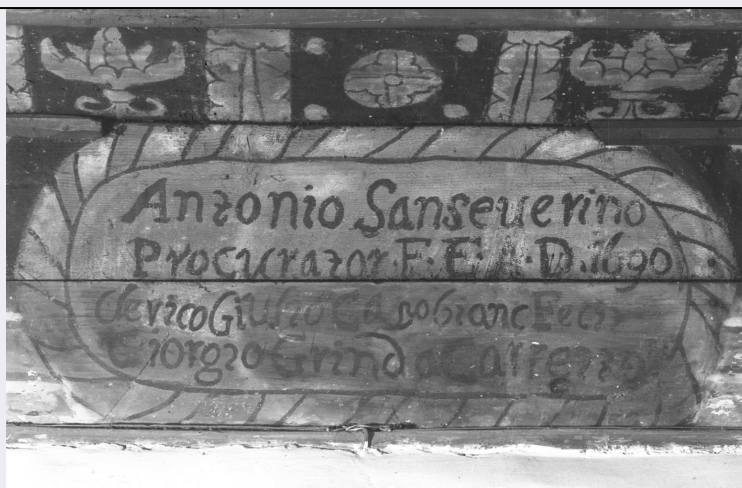 Antonio Sanseuerino
Procurator·F·E·A·D·1690
Clerico Giulio Capobianc Fecit
Giorgio Grindo